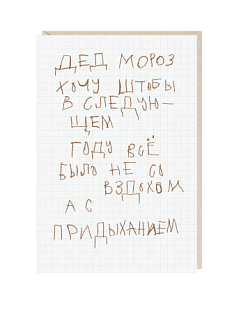 ДЕД МОРОЗ
ХОЧУ ШТОБЫ
В СЛЕДУЮ-
ЩЕМ
ГОДУ ВСЁ
БЫЛО НЕ СО
ВЗДОХОМ
А С
ПРИДЫХАНИЕМ